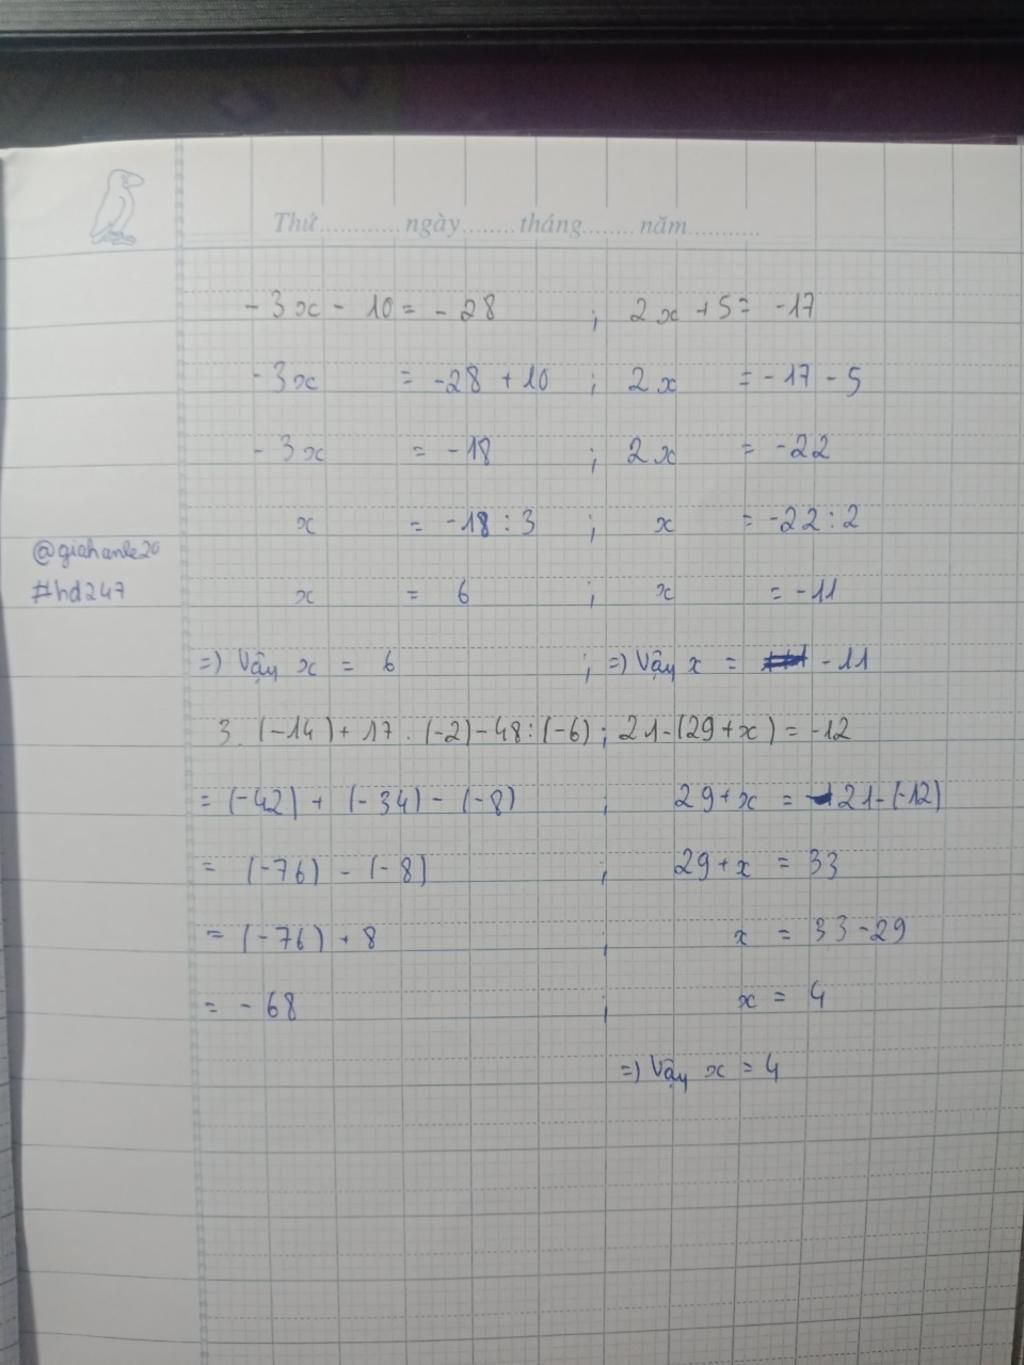 Thứ............ngày........tháng........năm...........
- 3x - 10 = - 28 ; 2x + 5 = -17
- 3x = -28 + 10 ; 2x = - 17 - 5
- 3x = - 18 ; 2x = -22
x = -18 : 3 ; x = -22 : 2
@giahanle20
#hd247
x = 6 ; x = -11
=) Vậy x = 6 ; =) Vậy x = - 11
3. (-14) + 17 . (-2) - 48 : (-6) ; 21 - (29 + x) = -12
= (-42) + (-34) - (-8) ; 29 + x = 21 - (-12)
= (-76) - (-8) ; 29 + x = 33
= (-76) + 8 ; x = 33 - 29
= - 68 ; x = 4
=) Vậy x = 4